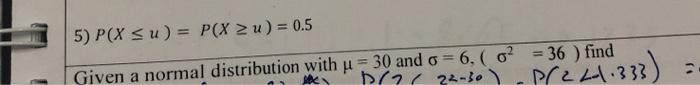 5) P(X ≤ u) = P(X ≥ u) = 0.5
Given a normal distribution with μ = 30 and σ = 6, ( σ² = 36 ) find
P(Z < 22-30) P(Z < -1.333) =